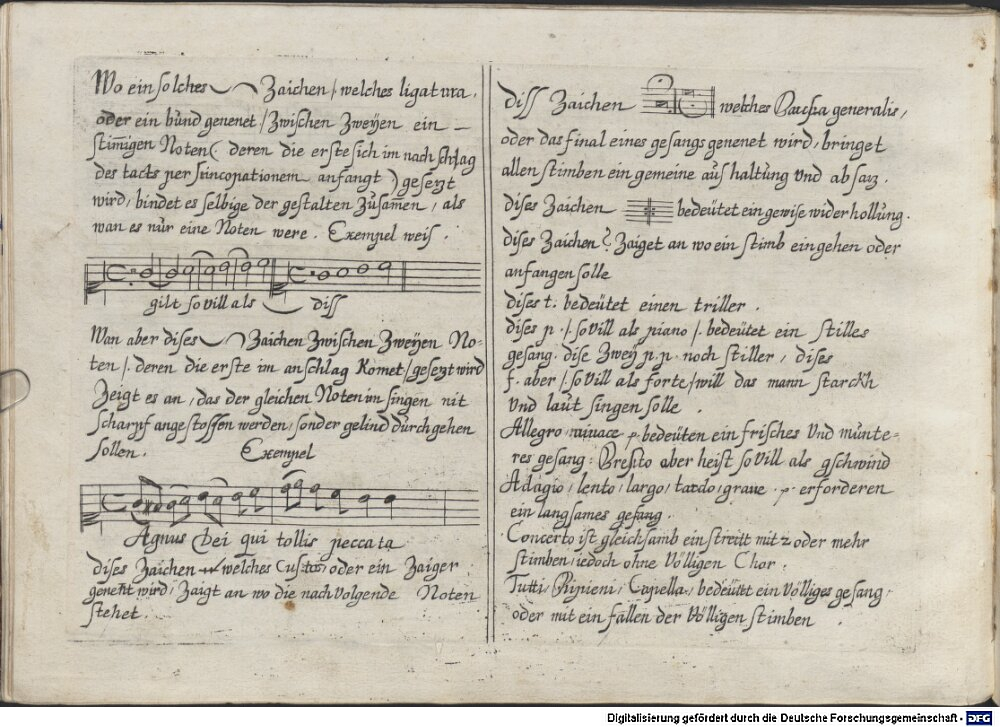 Wo ein solches Zaichen / welches ligatura,
oder ein bund genenet / Zwischen Zweyen ein -
stimigen Noten ( deren die erste sich im nach schlag
des tacts per sincopationem anfangt ) gesetzt
wird, bindet es selbige der gestalten Zusamen, als
wan es nur eine Noten were. Exempel weis.
gilt so vill als diss
Wan aber dises Zaichen Zwischen Zweyen No-
ten /. deren die erste im anschlag Komet / gesetzt wird
Zeigt es an, das der gleichen Noten im singen nit
scharpf angestossen werden, sonder gelind durchgehen
sollen. Exempel
Agnus Dei qui tollis peccata
dises Zaichen welches Custos, oder ein Zaiger
genent wird, Zaigt an wo die nachvolgende Noten
stehet.
diss Zaichen welches Pausa generalis,
oder das final eines gesangs genenet wird, bringet
allen stimben ein gemeine aushaltung und absaz.
dises Zaichen bedeutet ein gewise widerhollung.
dises Zaichen ? Zaiget an wo ein stimb eingehen oder
anfangen solle
dises t: bedeutet einen triller.
dises p. /. so vill als piano /. bedeutet ein stilles
gesang. dise Zwey p.p. noch stiller, dises
f. aber /. so vill als forte / will das mann starckh
und laut singen solle.
Allegro, vivace p. bedeuten ein frisches und munte-
res gesang: Presto aber heist so vill als gschwind
Adagio, lento, largo, tardo, grave. p. erforderen
ein langsames gesang.
Concerto ist gleichsamb ein streitt mit 2 oder mehr
stimben, iedoch ohne Völligen Chor.
Tutti, Ripieni, Capella, bedeutt ein Völliges gesang.
oder mit ein fallen der Völligen stimben
Digitalisierung gefördert durch die Deutsche Forschungsgemeinschaft - DFG